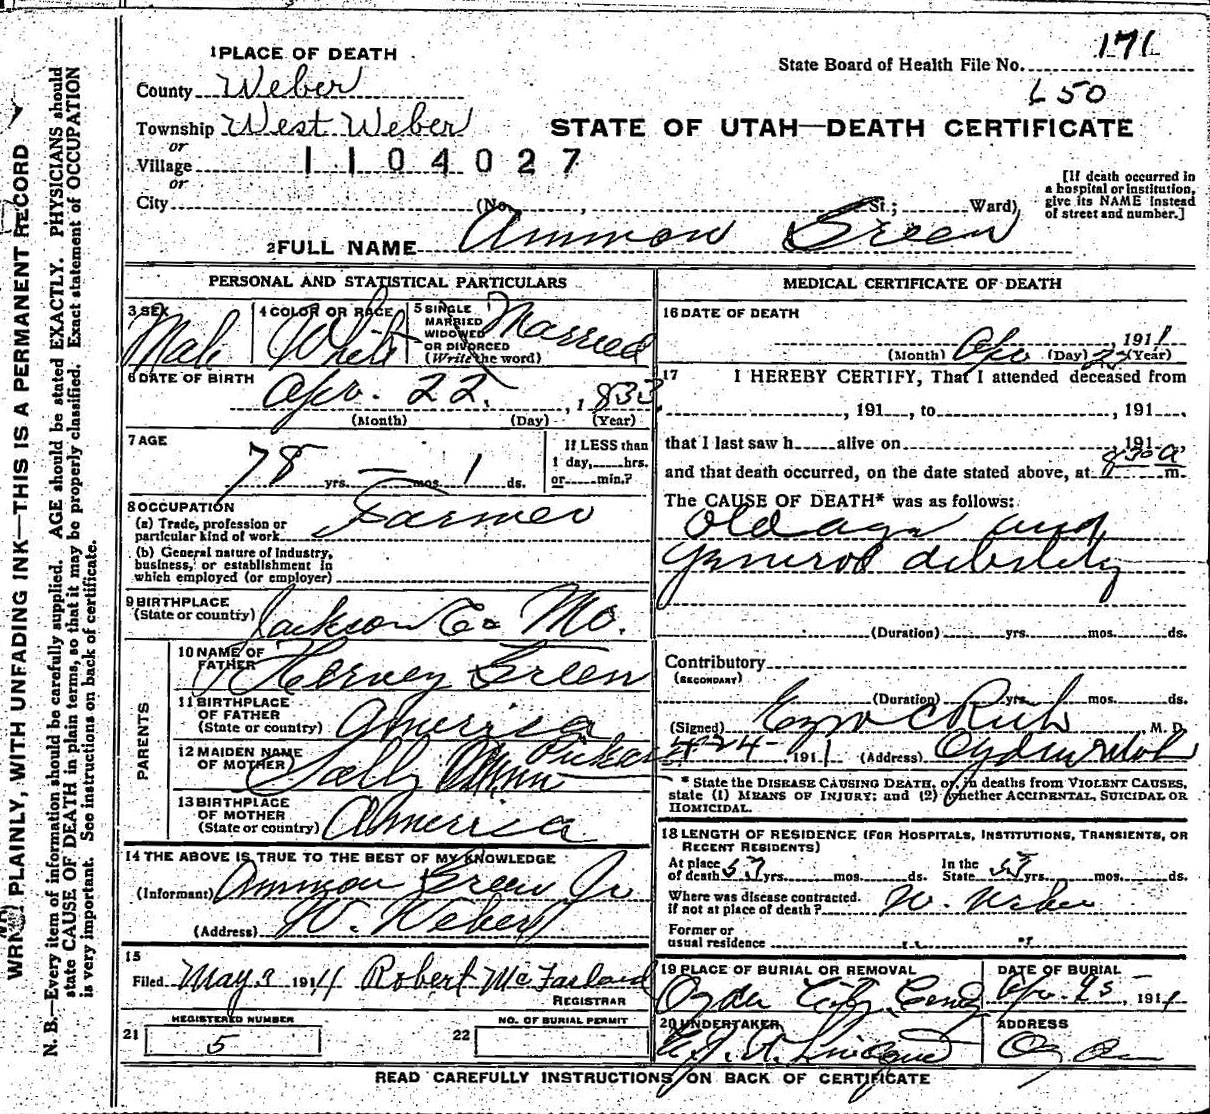 WRITE PLAINLY, WITH UNFADING INK—THIS IS A PERMANENT RECORD
N. B.—Every item of information should be carefully supplied. AGE should be stated EXACTLY. PHYSICIANS should
state CAUSE OF DEATH in plain terms, so that it may be properly classified. Exact statement of OCCUPATION
is very important. See instructions on back of certificate.
1 PLACE OF DEATH
County Weber
Township West Weber
or
Village 1104027
or
City (No. , St.; Ward)
171
State Board of Health File No.
650
STATE OF UTAH—DEATH CERTIFICATE
[If death occurred in
a hospital or institution,
give its NAME instead
of street and number.]
2 FULL NAME Ammon Green
PERSONAL AND STATISTICAL PARTICULARS
3 SEX Male
4 COLOR OR RACE White
5 SINGLE
MARRIED
WIDOWED
OR DIVORCED
(Write the word) Married
6 DATE OF BIRTH Apr. 22. , 1833
(Month) (Day) (Year)
7 AGE
78 yrs. — mos. 1 ds.
If LESS than
1 day, hrs.
or min.?
8 OCCUPATION
(a) Trade, profession or
particular kind of work Farmer
(b) General nature of industry,
business, or establishment in
which employed (or employer)
9 BIRTHPLACE
(State or country) Jackson Co Mo.
PARENTS
10 NAME OF
FATHER Hervey Green
11 BIRTHPLACE
OF FATHER
(State or country) America
12 MAIDEN NAME
OF MOTHER Sally Ann
13 BIRTHPLACE
OF MOTHER
(State or country) America
14 THE ABOVE IS TRUE TO THE BEST OF MY KNOWLEDGE
(Informant) Ammon Green Jr
(Address) W. Weber
15
Filed May 3 1911 Robert McFarland
REGISTRAR
REGISTERED NUMBER
21 5
NO. OF BURIAL PERMIT
22
MEDICAL CERTIFICATE OF DEATH
16 DATE OF DEATH
Apr 23 , 1911
(Month) (Day) (Year)
17 I HEREBY CERTIFY, That I attended deceased from
, 191 , to , 191 .
that I last saw h alive on , 191
and that death occurred, on the date stated above, at 830 a m.
The CAUSE OF DEATH* was as follows:
Old age and
general debility
(Duration) yrs. mos. ds.
Contributory
(SECONDARY)
(Duration) yrs. mos. ds.
(Signed) Ezra C Rich M. D.
4-24- 1911 (Address) Ogden Utah
* State the DISEASE CAUSING DEATH, or, in deaths from VIOLENT CAUSES,
state (1) MEANS OF INJURY; and (2) whether ACCIDENTAL, SUICIDAL OR
HOMICIDAL.
18 LENGTH OF RESIDENCE (FOR HOSPITALS, INSTITUTIONS, TRANSIENTS, OR
RECENT RESIDENTS)
At place
of death yrs. mos. ds.
In the
State yrs. mos. ds.
Where was disease contracted.
if not at place of death? W. Weber
Former or
usual residence
19 PLACE OF BURIAL OR REMOVAL
Ogden City Cem
DATE OF BURIAL
Apr. 25 , 1911
20 UNDERTAKER
ADDRESS
Ogden
READ CAREFULLY INSTRUCTIONS ON BACK OF CERTIFICATE